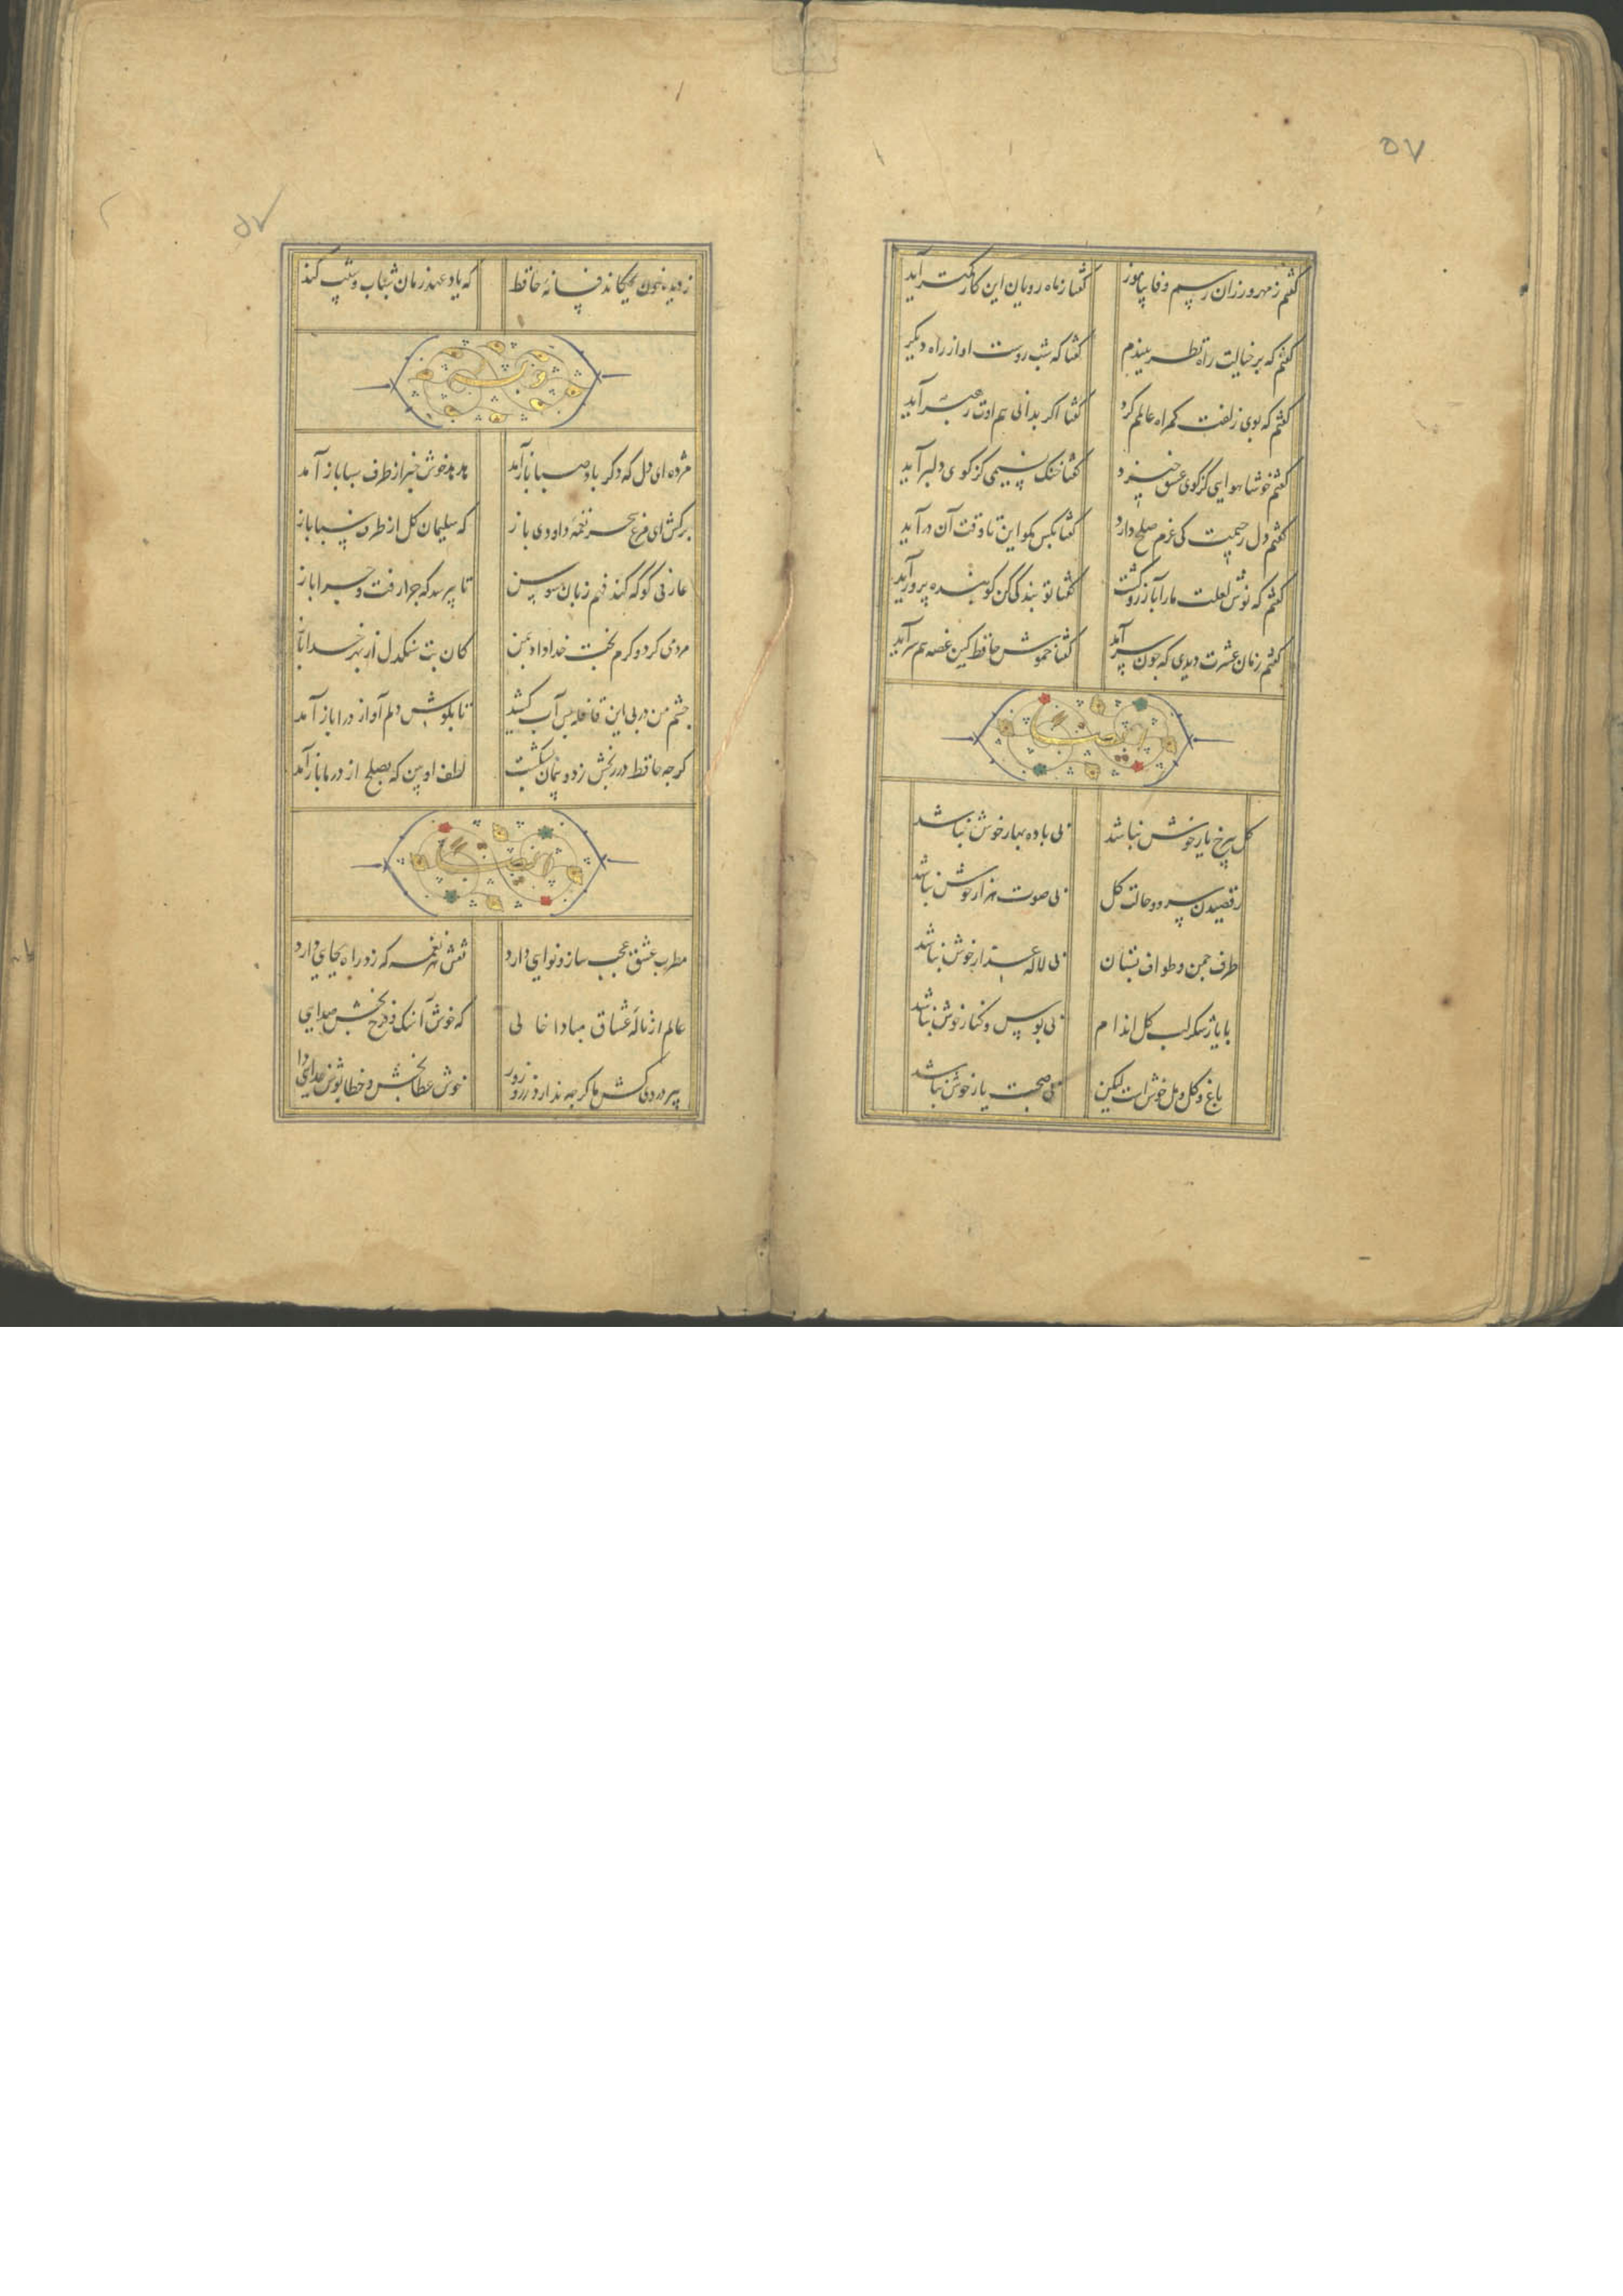 ۵۷
گفتم ز مهرورزان رسم وفا بیاموز گفتا ز ماه رویان این کار کمتر آید
گفتم که بر خیالت راه نظر ببندم گفتا که شب روست او از راه دیگر
گفتم که بوی زلفت گمراه عالمم کرد گفتا اگر بدانی هم اوت رهبر آید
گفتم خوشا هوایی کز کوی عشق خیزد گفتا خنک نسیمی کز کوی دلبر آید
گفتم دل رحیمت کی عزم صلح دارد گفتا بکس مگو این تا وقت آن درآید
گفتم که نوش لعلت ما را بآرزو کشت گفتا تو بندگی کن کو بنده پرور آید
گفتم زمان عشرت دیدی که چون سرآید گفتا خموش حافظ کین غصه هم سرآید
ایضا
گل بی رخ یار خوش نباشد بی باده بهار خوش نباشد
رقصیدن سرو و حالت گل بی صوت هزار خوش نباشد
طرف چمن و طواف بستان بی لاله عذار خوش نباشد
با یار شکر لب گل اندام بی بوس و کنار خوش نباشد
باغ و گل و مل خوش است لیکن بی صحبت یار خوش نباشد
۵۷
ز دیده خون بچکاند فسانه حافظ که یاد عهد زمان شباب و شیب کند
وله
مژده ای دل که دگر باد صبا بازآمد هدهد خوش خبر از طرف سبا باز آمد
برکش ای مرغ سحر نغمه داودی باز که سلیمان گل از طرف سبا باز
عارفی کو که کند فهم زبان سوسن تا بپرسد که چرا رفت و چرا باز
مردمی کرد و کرم بخت خداداد بمن کان بت سنگدل از بهر خدا باز
چشم من در پی این قافله بس آب کشید تا بگوش دلم آواز درا باز آمد
گرچه حافظ در رنجش زد و پیمان بشکست لطف او بین که بصلح از در ما بازآمد
ایضا
مطرب عشق عجب ساز و نوایی دارد نقش هر نغمه که زد راه بجایی دارد
عالم از ناله عشاق مبادا خالی که خوش آهنگ و فرح بخش صدایی
پیر دردی کش ما گرچه ندارد زر و زور خوش عطابخش و خطاپوش خدایی دا